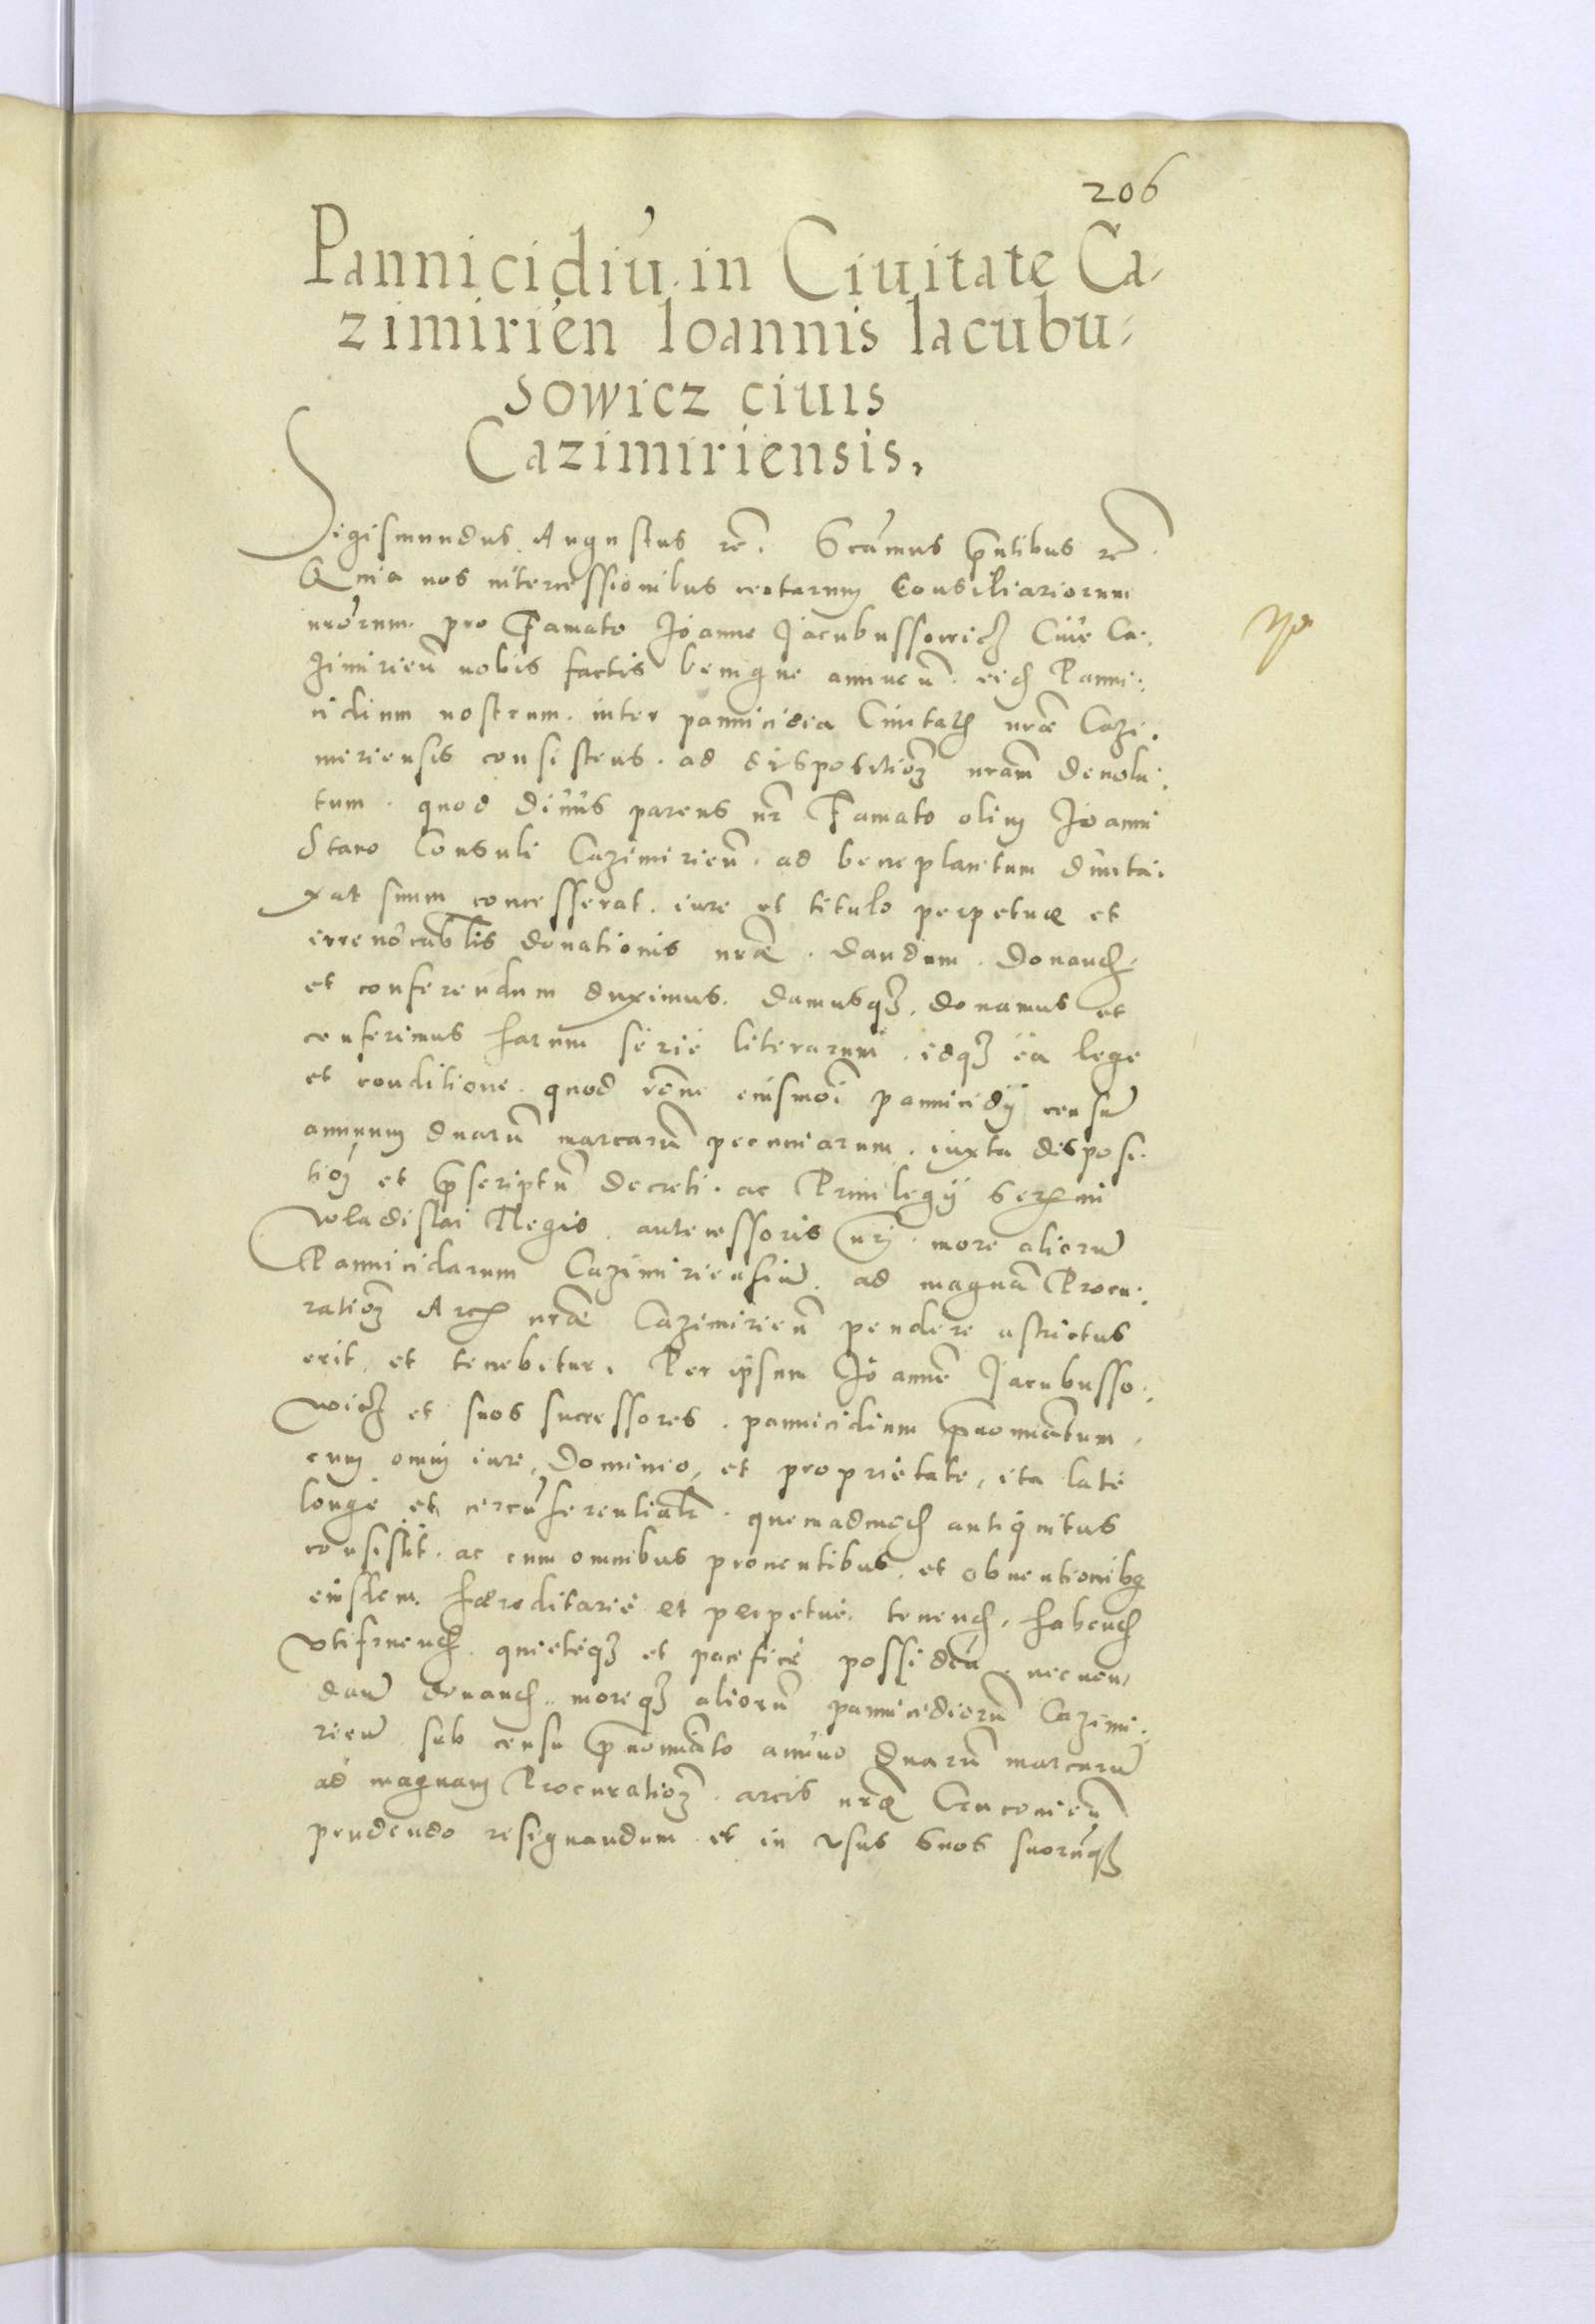 206
Pannicidiū in Ciuitate Ca,
zimirien̄ Ioannis Iacubu,
sowicz ciuis
Cazimiriensis,
Sigismundus Augustus rc̄. Scāmus p̄ntibus rc̄.
Quia nos intercessionibus certorum Consiliariorum
nrōrum pro Famato Joanne Jacubussowicz Ciue Ca,
zimirien̄ nobis factis benigne annuen̄. eiꝰ Panni,
cidium nostrum inter pannicidia Ciuitatꝭ nrae Cazi,
miriensis consistens. ad dispositioꝫ nram̄ deuolu,
tum. quod diuus parens nr̄ Famato olim Joanni
Staro Consuli Cazimirien̄. ad beneplacitum dunta,
xat suum concesserat. iure et titulo perpetuae et
irreuocabilis donationis nrae. dandum. donandꝭ
et conferendum duximus. damusqꝫ, donamus et
conferimus harum serie literarum. idqꝫ ea lege
et conditione. quod rōne eiusmōi pannicidij censū
annuum duarū marcarū pecuniarum. iuxta disposi,
tioꝫ et p̄scriptū decreti. ac Priuilegij Serꝫmi
Wladislai Regis. antecessoris nrj. more aliorū
Pannicidarum Cazimiriensiū. ad magnā Procu,
ratioꝫ Arcꝭ nrae Cazimirien̄ pendere astrictus
erit, et tenebitur. Per ipsum Joannē Jacubusso,
wicz et suos successores. pannicidium p̄nomiātum,
cum omni iure, Dominio, et proprietate, ita late
longe et circūferentialr̄. quemadmodꝭ antiquitus
consistit. ac cum omnibus prouentibus. et obuentionibꝰ
eiusdem. haereditarie et perpetue. tenendꝭ, habendꝭ
vtifruendꝭ. quieteqꝫ et pacifice possiden̄. necnon,
dan̄ donandꝭ. moreqꝫ aliorū pannicidiorū Cazimi,
rien̄ sub censu p̄nomiāto annuo duarū marcarū
ad magnam Procuratioꝫ. arcis nrae Cracouien̄
pendendo resignandum et in vsus suos suorūqꝫ